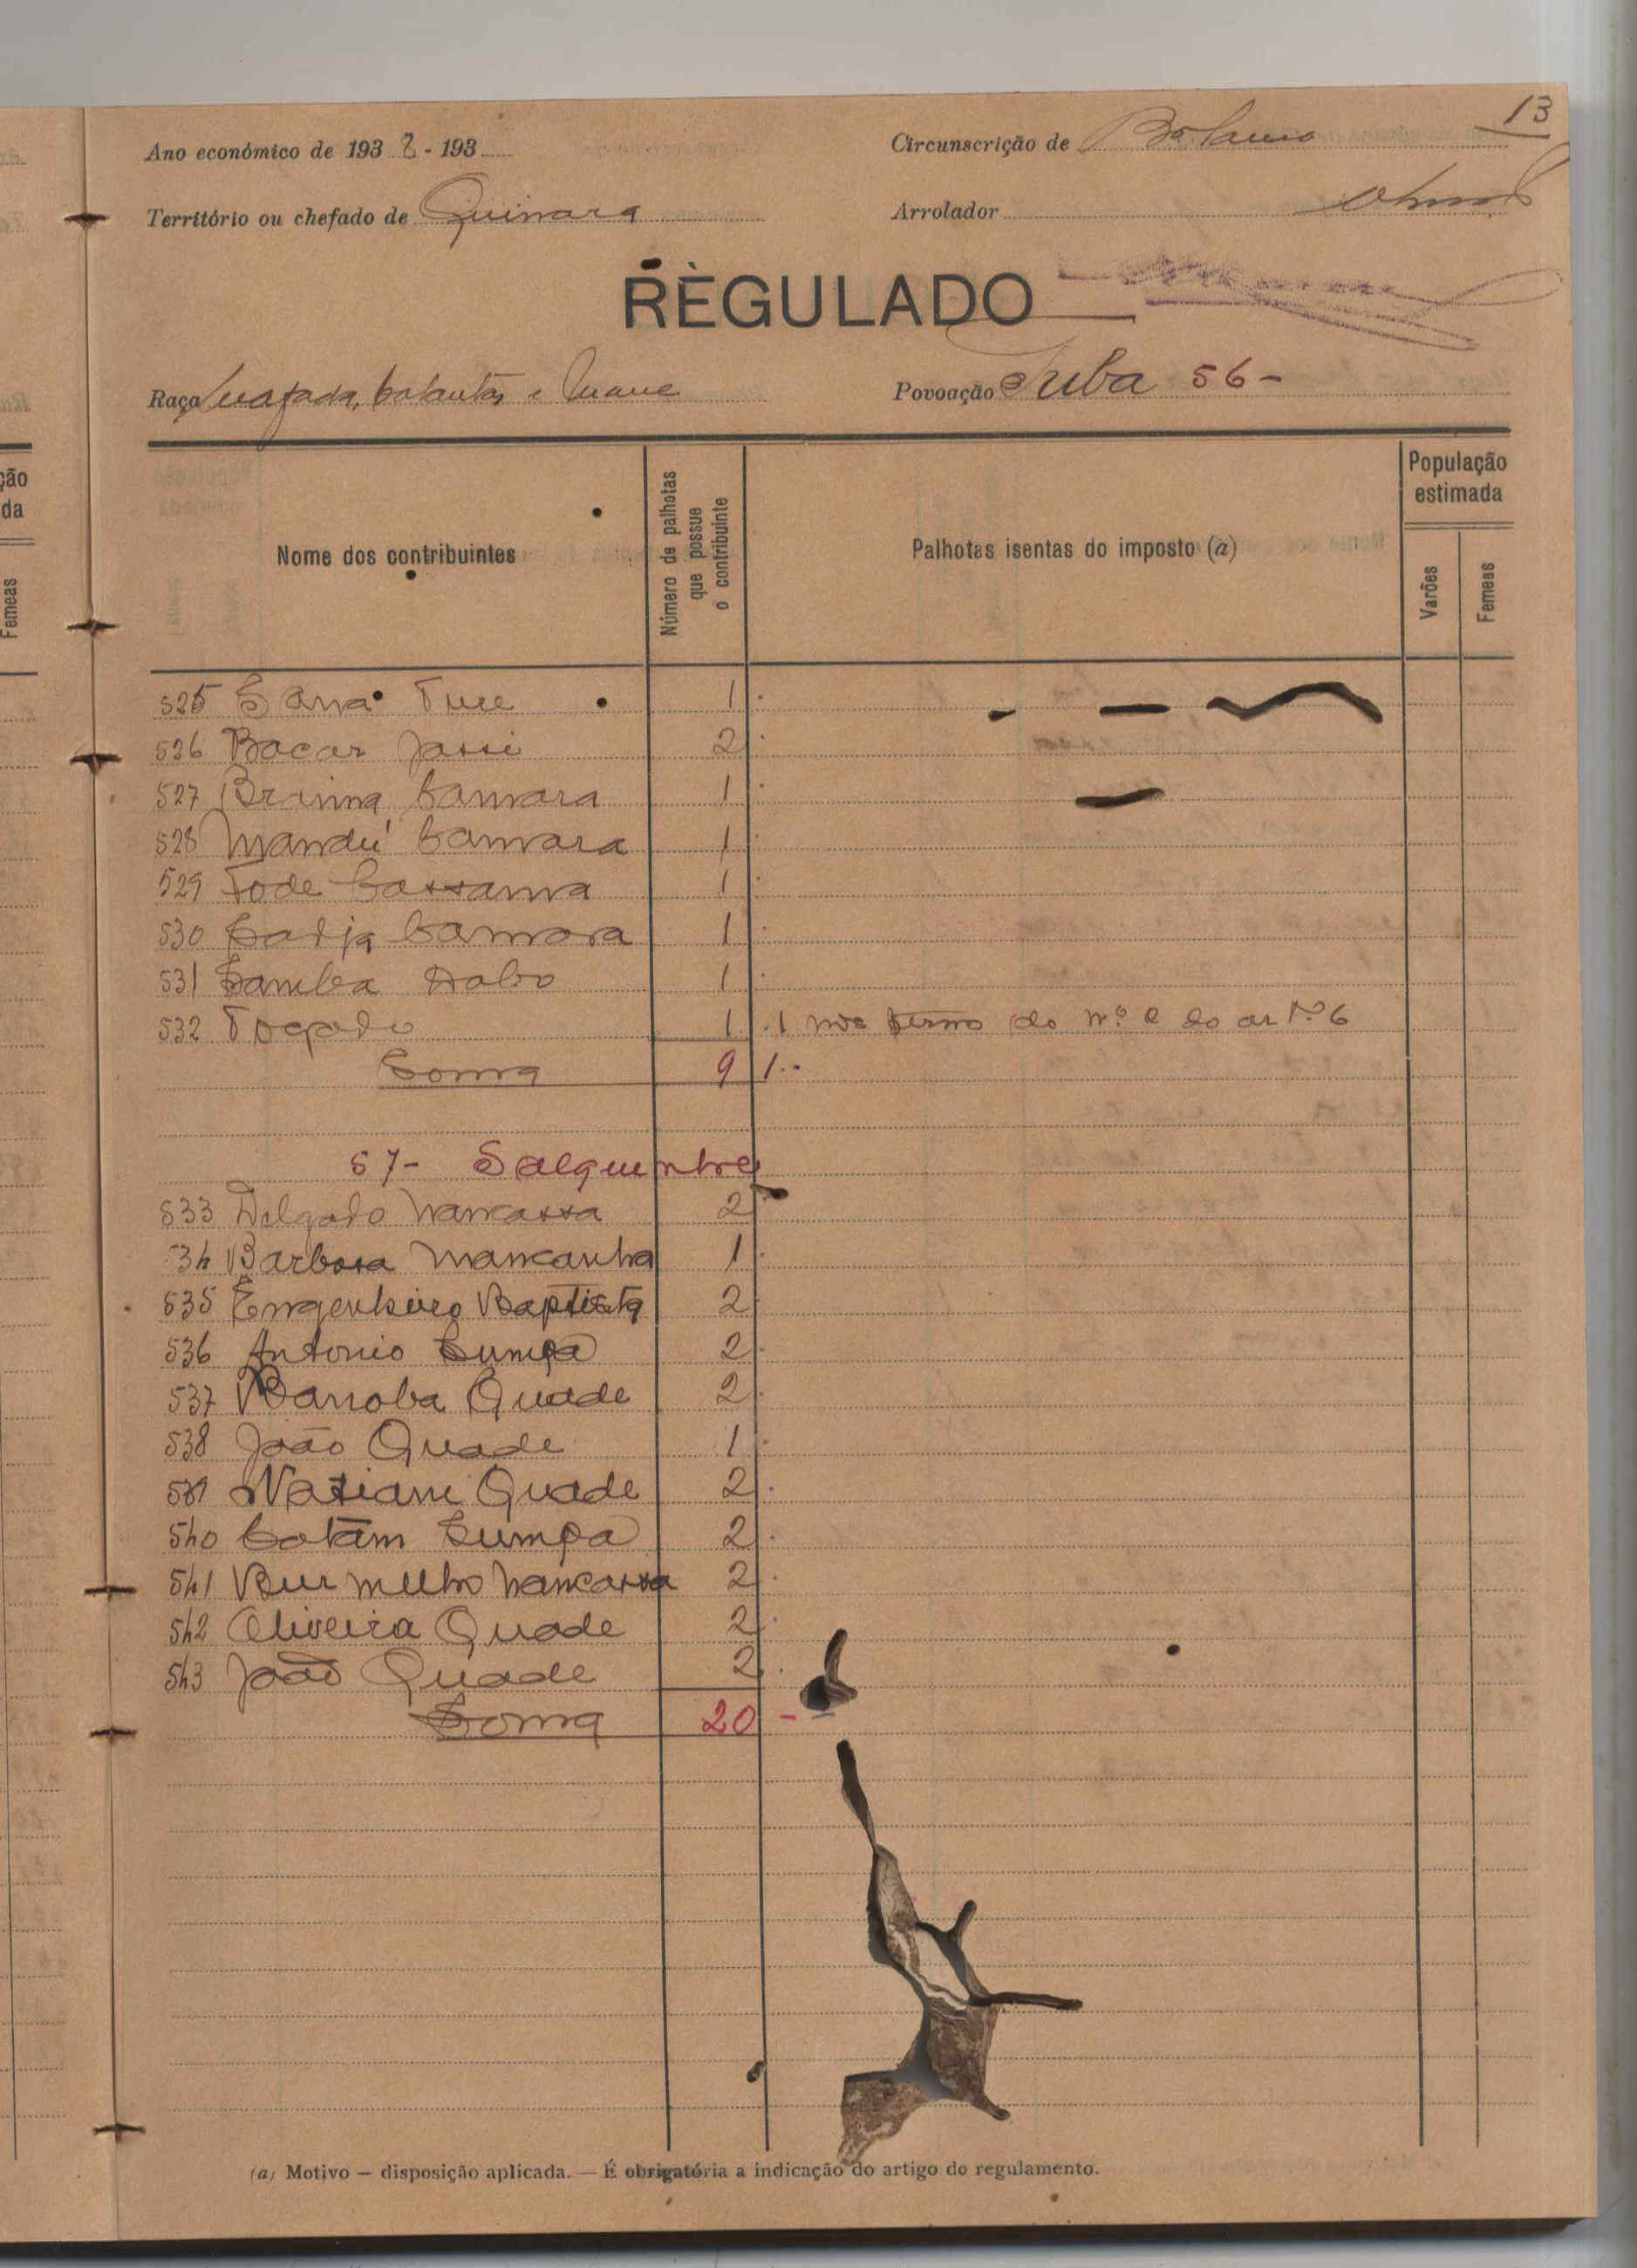 13
Ano económico de 193 8 - 193
Circunscrição de Bolama
Território ou chefado de Quinara
Arrolador
REGULADO
Raça balantas e
Povoação Juba 56-
População estimada
Nome dos contribuintes
Número de palhotas que possue o contribuinte
Palhotas isentas do imposto (a)
Varões
Femeas
525 Sana Ture 1
526 Bacar Jassi 2
527 Braima Camara 1
528 Mandú Camara 1
529 Fode Cassama 1
530 Sadja Camara 1
531 Samba Dabo 1
532 Togado 1 1 nos termo do nº 2 do artº 6
Soma 9 1
57- Salquenhe
533 Delgado Nancassa 2
534 Barbosa Mancanha 1
535 Engenheiro Baptista 2
536 Antonio Sumpa 2
537 Barroba Quade 2
538 João Quade 1
539 Natiam Quade 2
540 Cotam Sumpa 2
541 Burmelho Nancassa 2
542 Oliveira Quade 2
543 João Quade 2
Soma 20 -
(a) Motivo — disposição aplicada. — É obrigatória a indicação do artigo do regulamento.
ção
da
Femeas